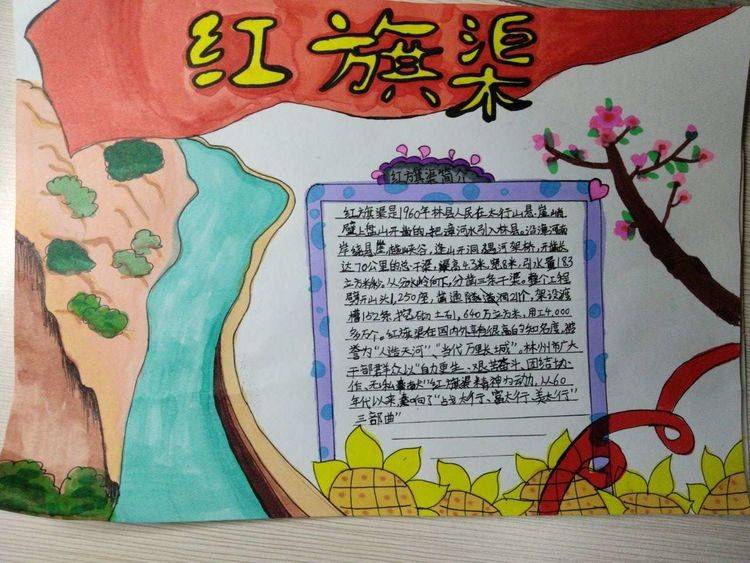 红旗渠
红旗渠简介
红旗渠是1960年林县人民在太行山悬崖峭
壁上凿山开凿的,把漳河水引入林县。沿漳河南
岸绕悬崖,越峡谷,连山开洞遇河架桥,开凿长
达70公里的总干渠,渠高4.3米,宽8米,引水量183
立方米秒,从分水岭向下,分凿三条干渠。整个工程
劈开山头1,250座,凿通隧道洞211个,架设渡
槽152条,挖砌土石1,640万立方米,用工4,000
多万个。红旗渠在国内外享有很高的知名度,被
誉为"人造天河"、"当代万里长城"。林州市广大
干部群众以"自力更生、艰苦奋斗、团结协
作、无私奉献"红旗渠精神为动力,从60
年代以来奏响了"战太行、富太行、美太行"
三部曲"